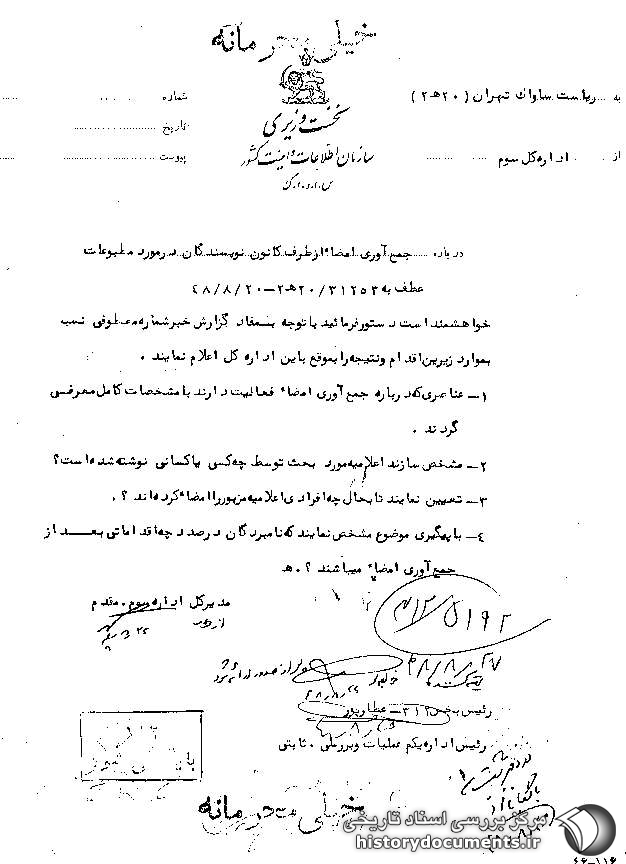 خیلی محرمانه
به ..... ریاست ساواک تهران ( ۲۰ هـ ۲ )
شماره
نخست وزیری
تاریخ
سازمان اطلاعات و امنیت کشور
از ..... اداره کل سوم
پیوست
س.ا.و.ا.ک
درباره ..... جمع آوری امضاء از طرف کانون نویسندگان در مورد مطبوعات
عطف به ۲۰/۳۱۲۵۳ هـ ۲ – ۲۸/۸/۲۰
خواهشمند است دستور فرمائید با توجه بمفاد گزارش خبر شماره معطوفی نسب
بموارد زیرین اقدام و نتیجه را بموقع باین اداره کل اعلام نمایند .
۱– عناصری که درباره جمع آوری امضاء فعالیت دارند با مشخصات کامل معرفی
گردند .
۲– مشخص سازند اعلامیه مورد بحث توسط چه کسی یا کسانی نوشته شده است؟
۳– تعیین نمایند تا بحال چه افرادی اعلامیه مزبور را امضاء کرده اند ؟ .
۴– با پیگیری موضوع مشخص نمایند که نامبردگان در صدد چه اقداماتی بعد از
جمع آوری امضاء میباشند ؟ . هـ
مدیر کل اداره سوم . مقدم
از طرف
۲۸/۸/۲۷
رئیس بخش ۳۱۲ – عطارپور
رئیس اداره یکم عملیات و بررسی . ثابتی
خیلی محرمانه
مرکز بررسی اسناد تاریخی
historydocuments.ir
۶۶–۱۱۶